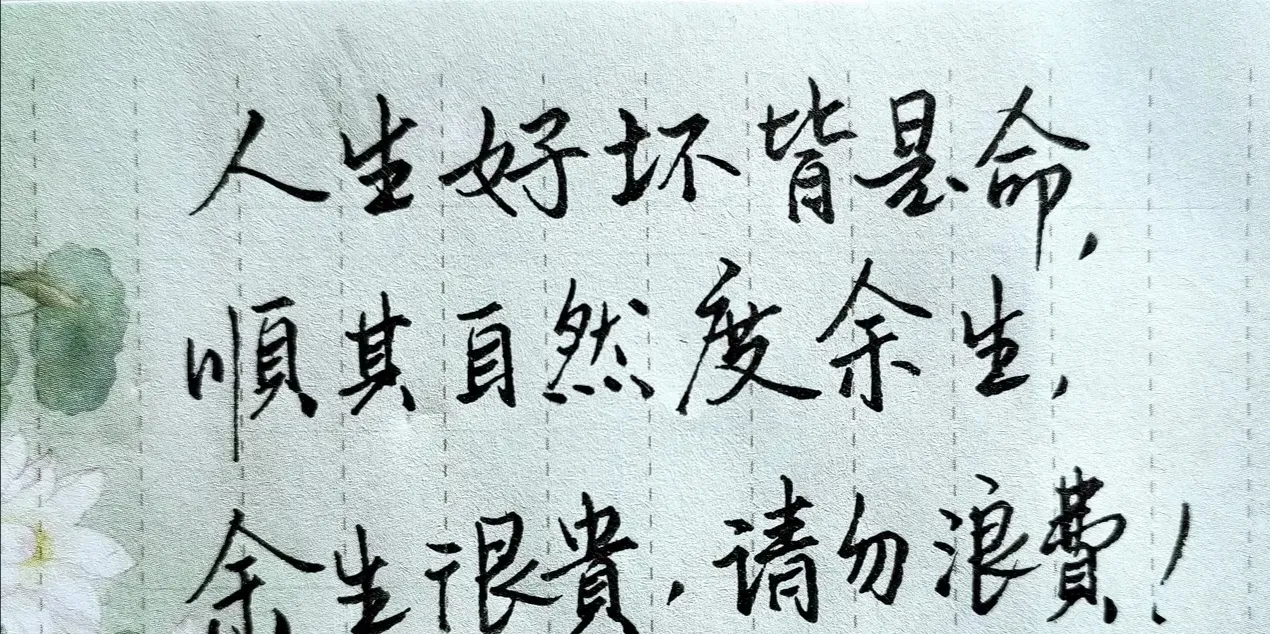 人生好坏皆是命，
順其自然度余生，
余生很貴，请勿浪費！